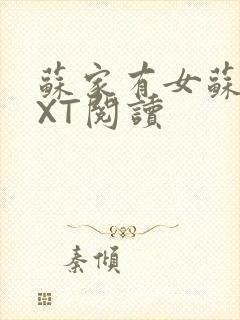 蘇家有女蘇
XT閱讀
秦傾